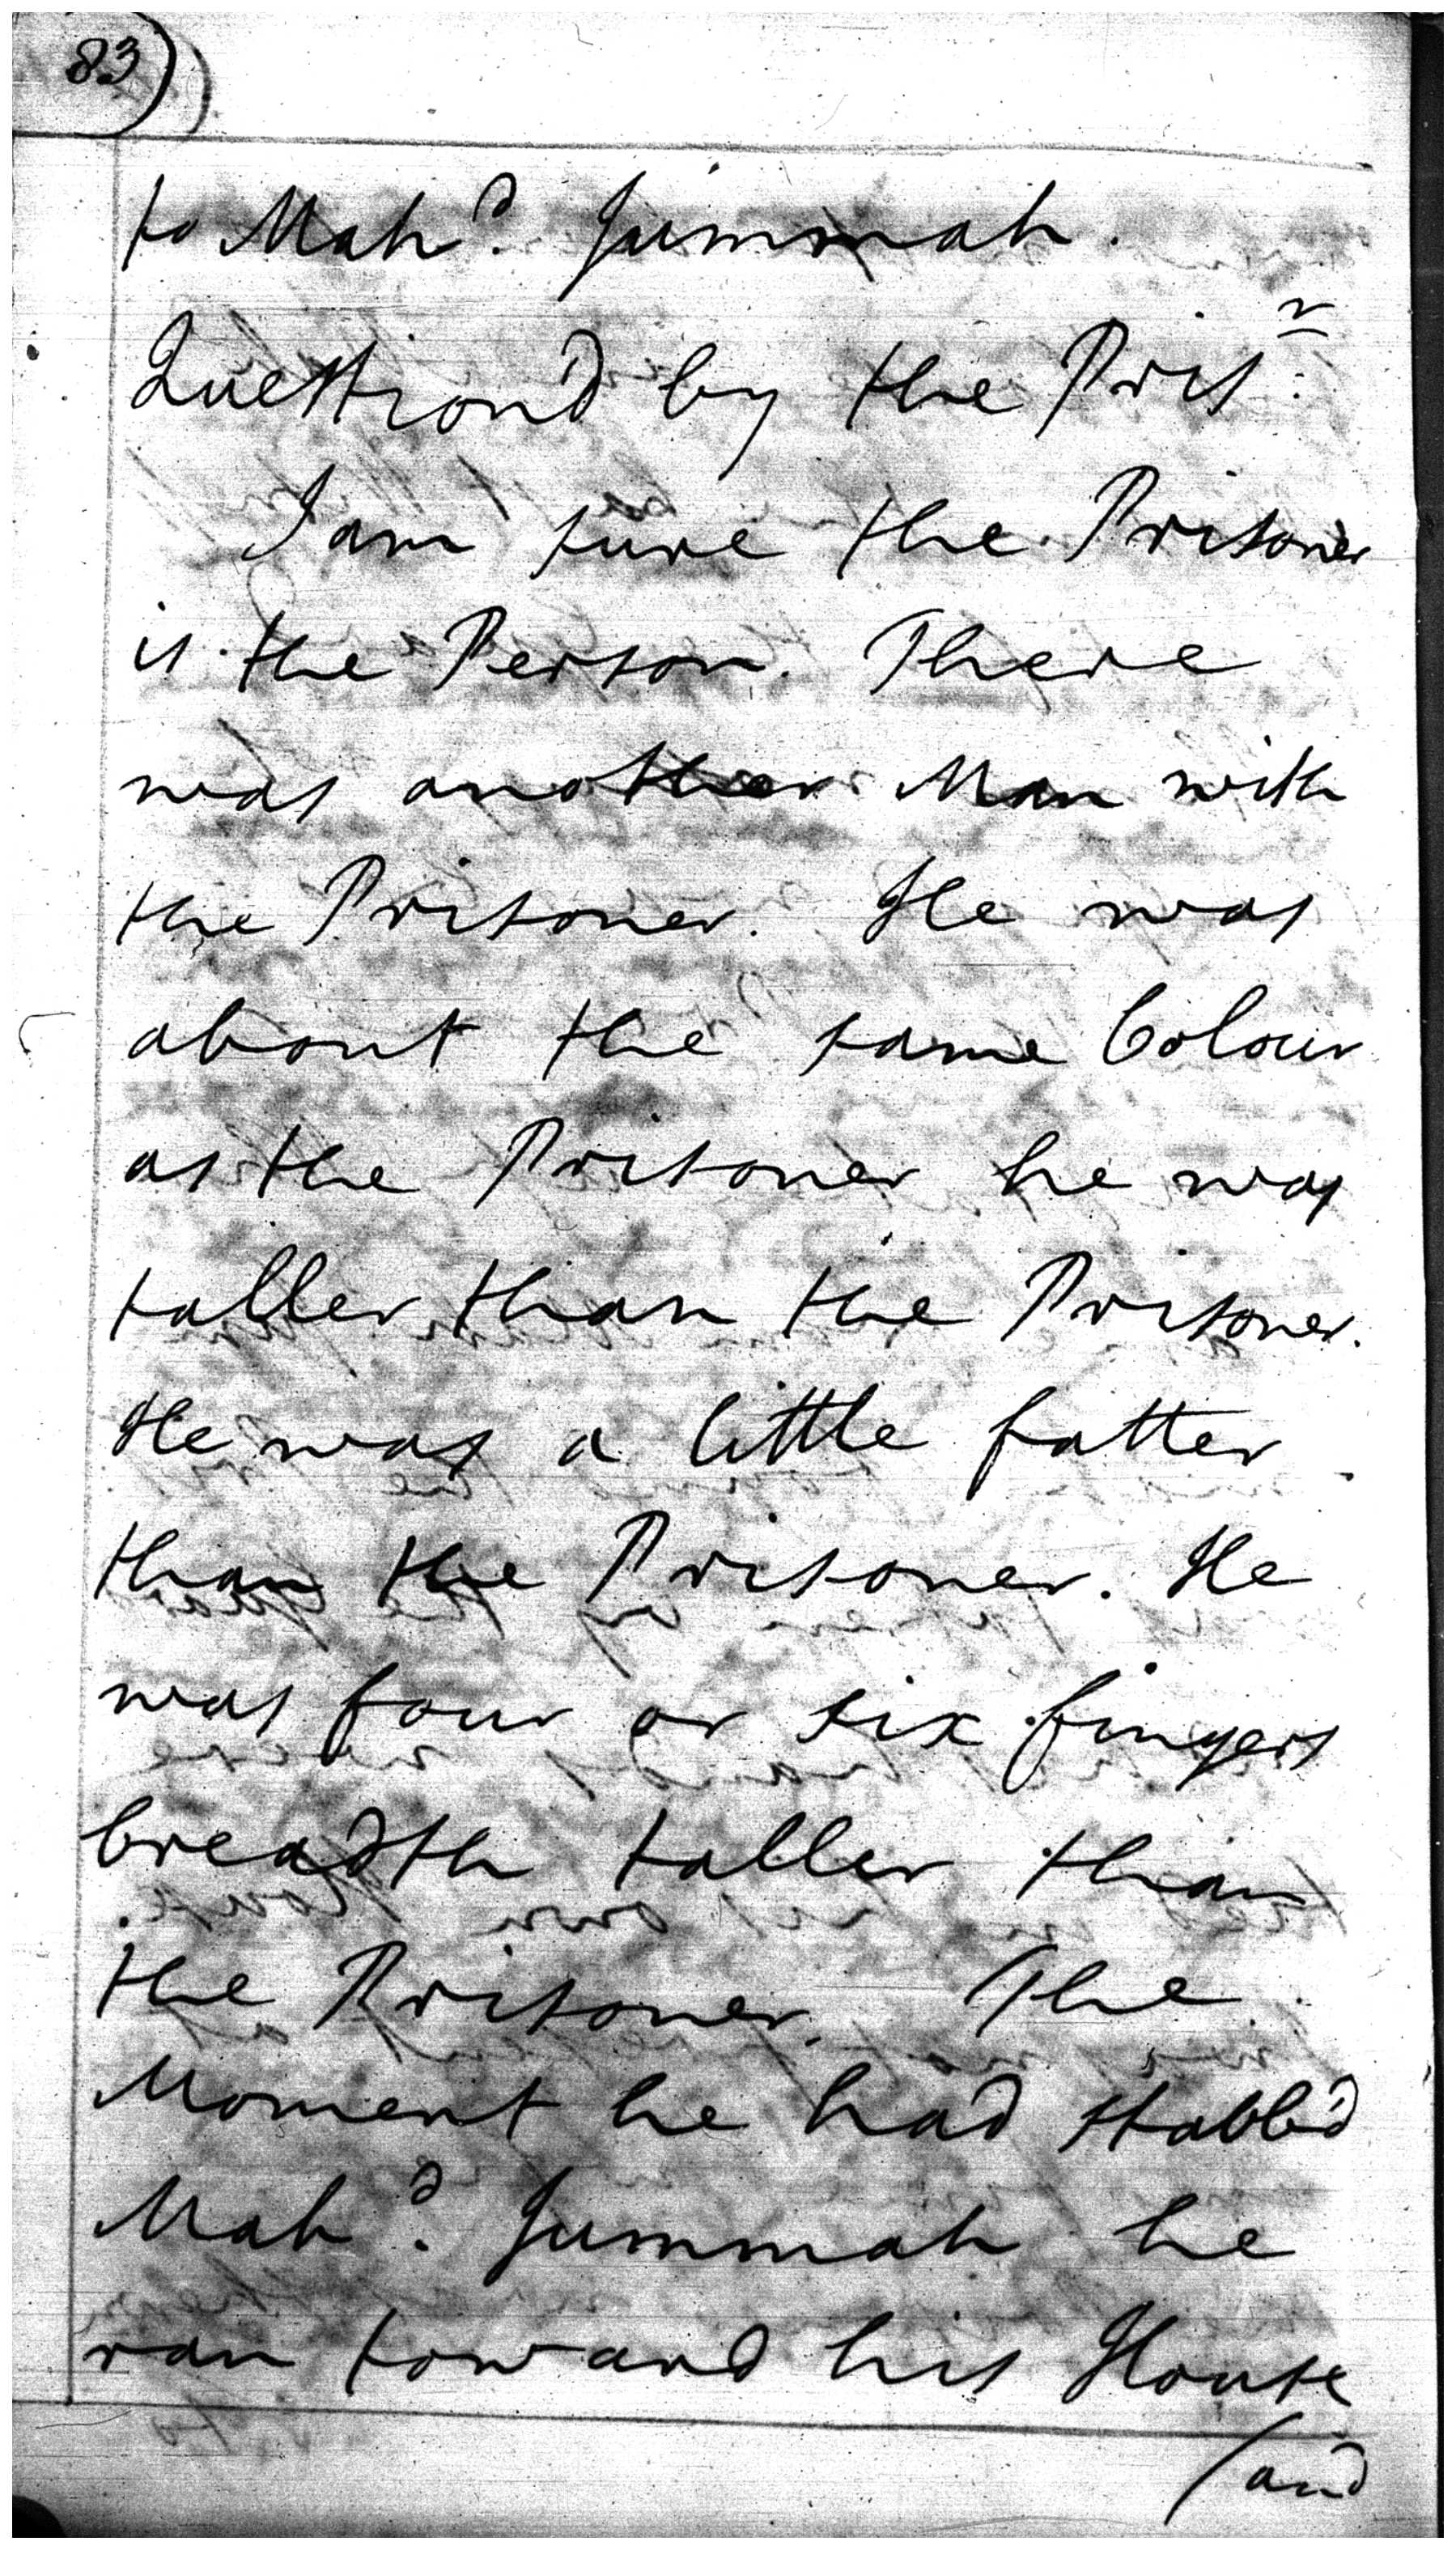 83)
to Mahd. Jummah.
Questiond by the Prisr.
I am sure the Prisoner
is the Person. There
was another Man with
the Prisoner. He was
about the same Colour
as the Prisoner he was
taller than the Prisoner.
He was a little fatter
than the Prisoner. He
was four or six fingers
breadth taller than
the Prisoner. The
Moment he had stabb'd
Mahd. Jummah he
ran toward his House
(and